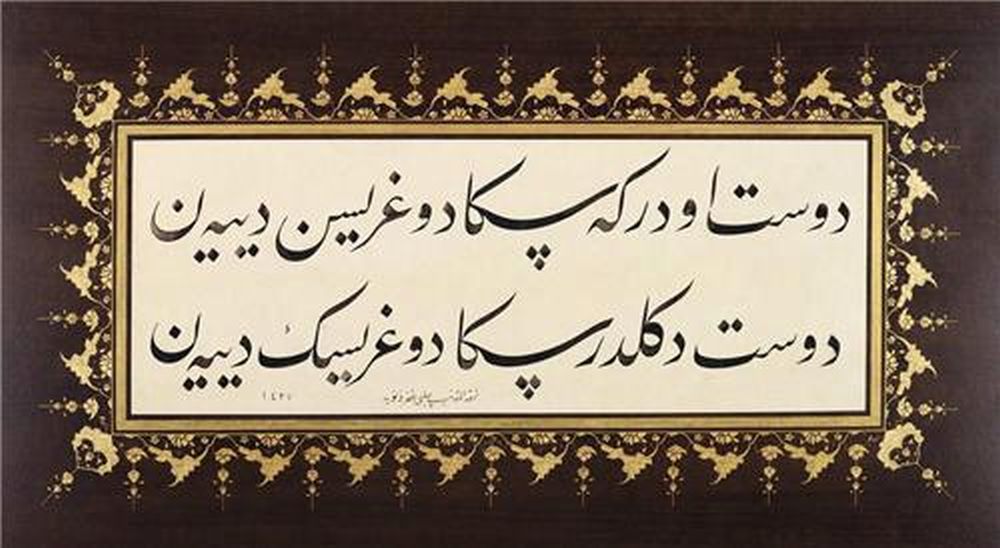 دوست اودركه سكا دوغريسين ديیه ن
دوست دكلدر سكا دوغريسك ديیه ن
١٤٢١